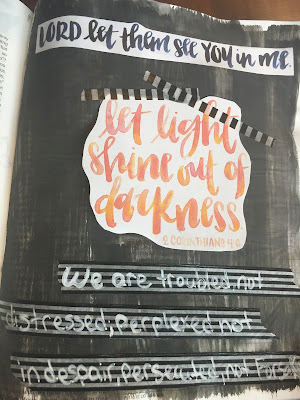 LORD let them see YOU in me.
let light
shine out of
darkness.
2 CORINTHIANS 4:6
We are troubled not
distressed, perplexed not
in despair, persecuted, not